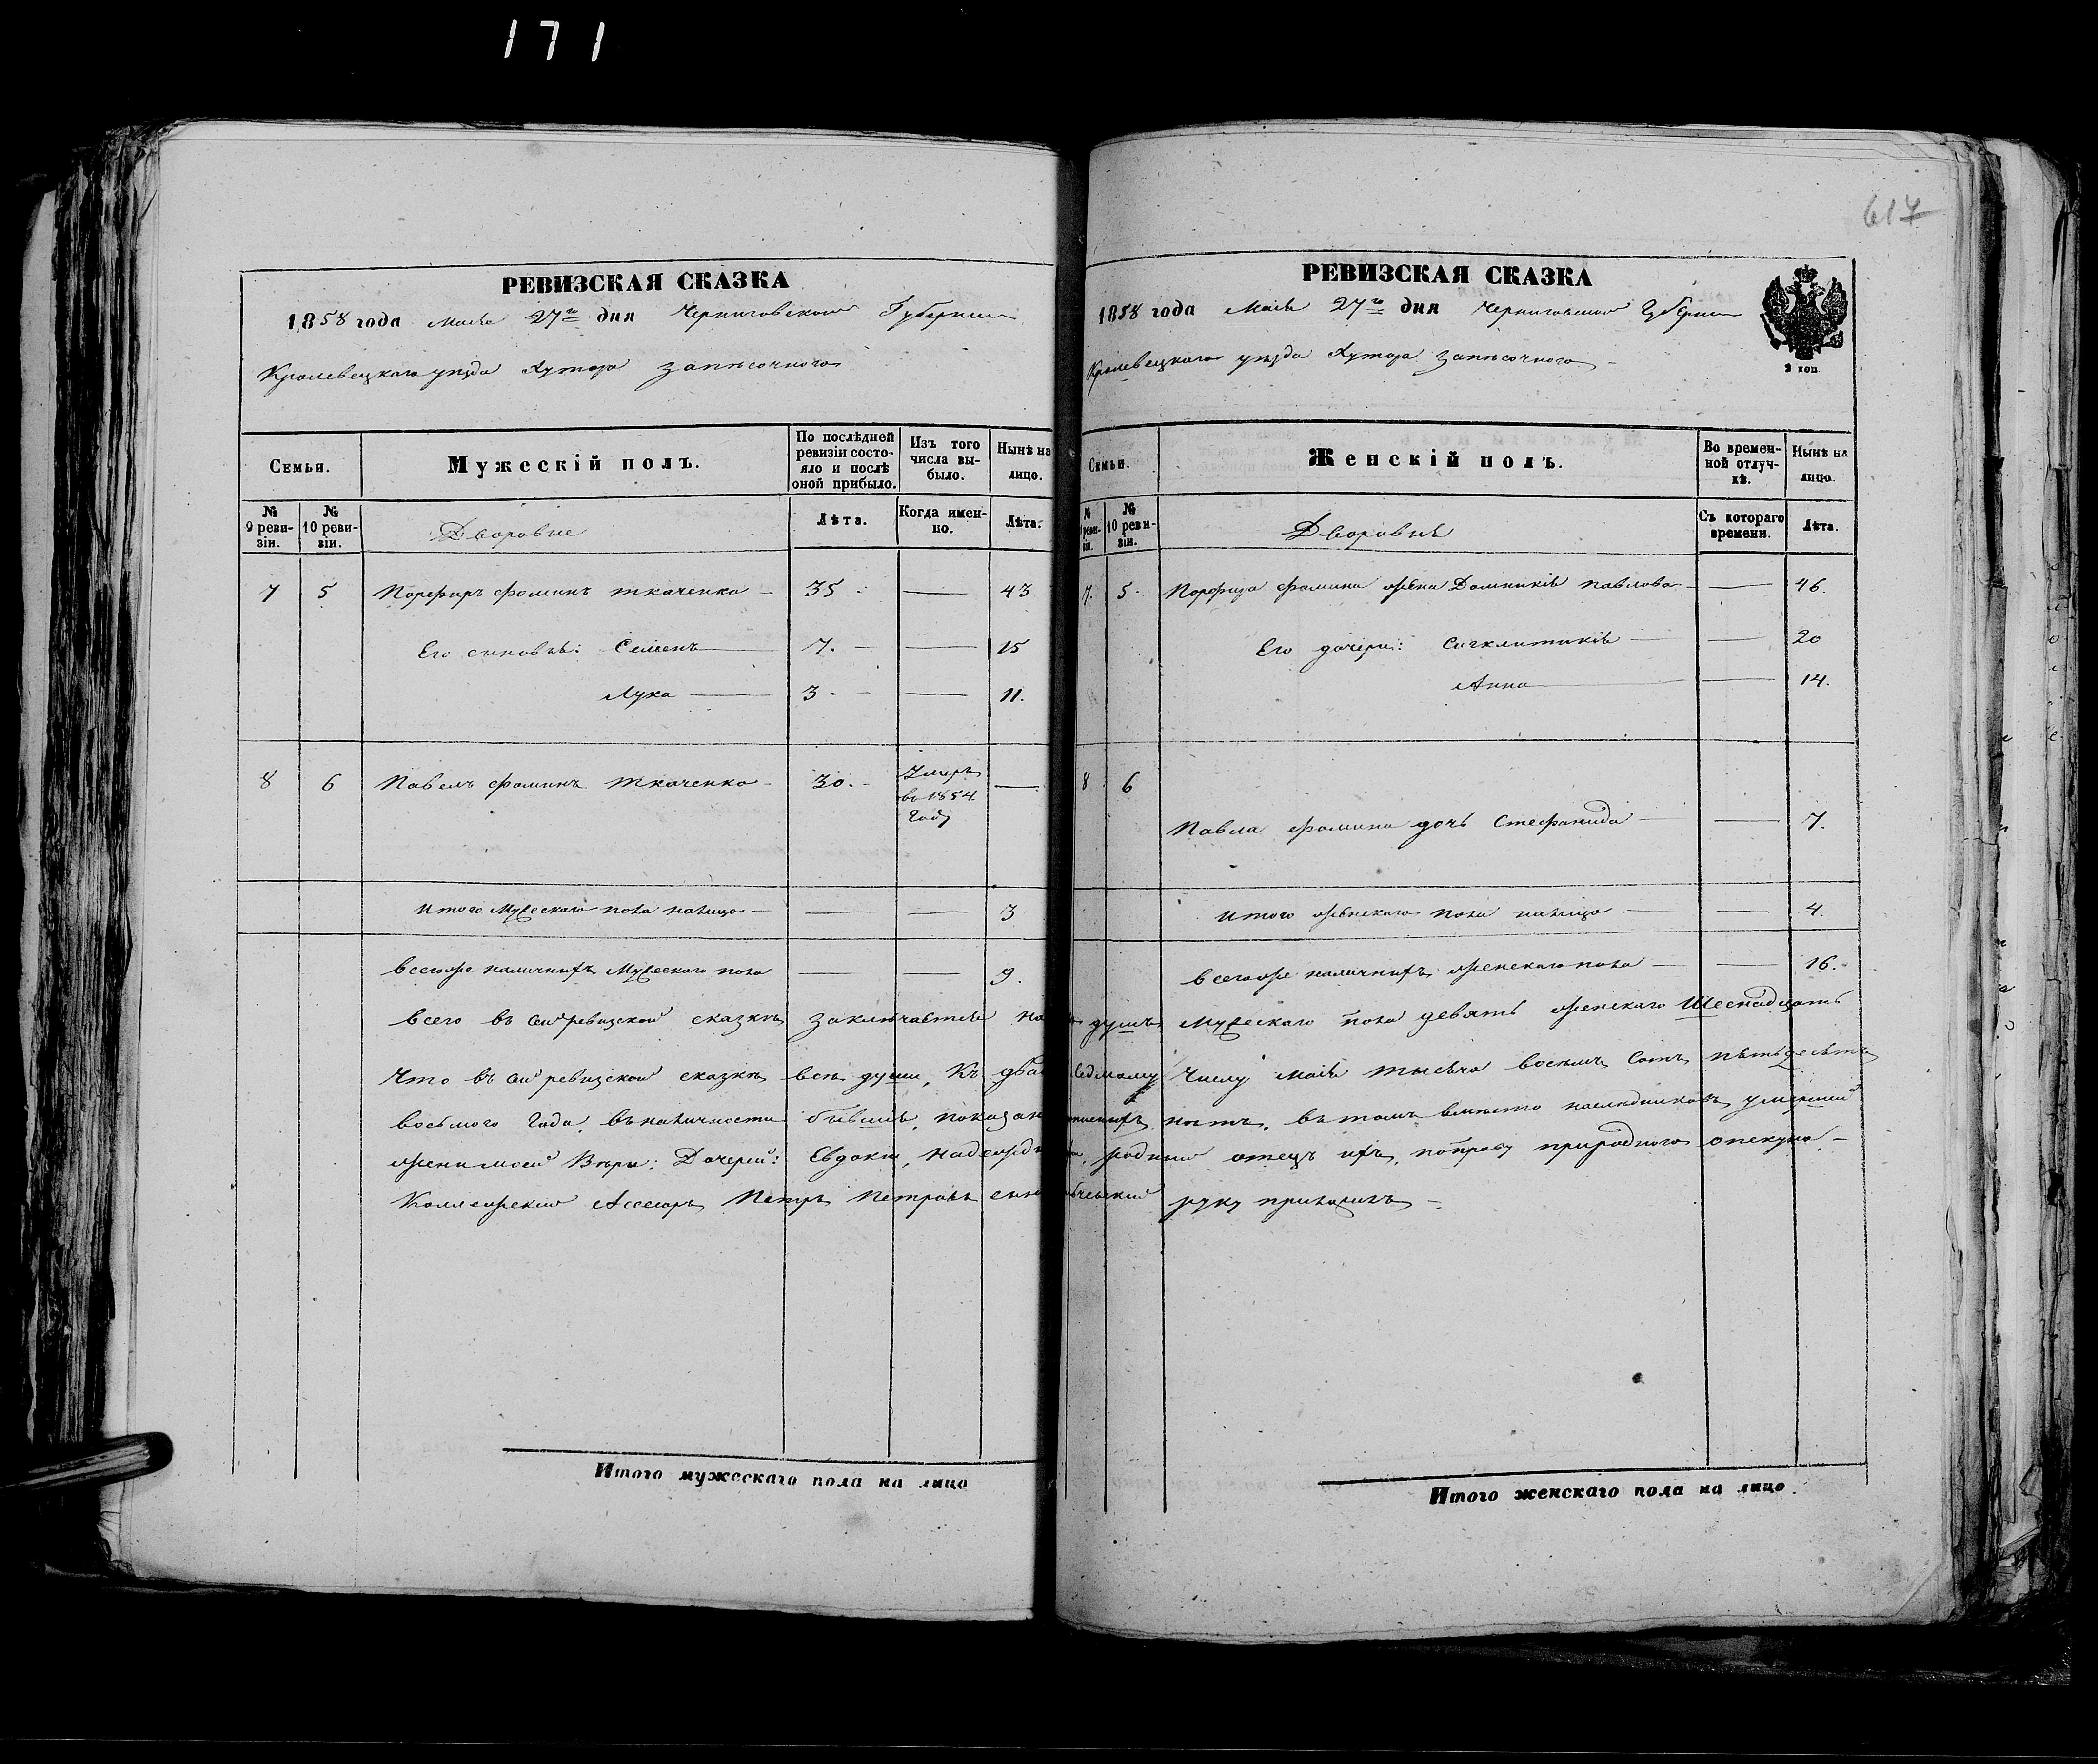 171
617
РЕВИЗСКАЯ СКАЗКА
1858 года Маія 27го дня Черниговской Губерніи
Кролевецкаго уѣзда Хутора Запѣсочного
Семьи.
Мужескій полъ.
По послѣдней ревизіи состояло и послѣ оной прибыло.
Изъ того числа выбыло.
Нынѣ на лицо.
№ 9 ревизіи.
№ 10 ревизіи.
Дворовые
Лѣта.
Когда именно.
Лѣта.
7 5 Порфиръ Фоминъ Ткаченко — 35 — 43
Его сыновья: Семенъ — 7. — 15
Лука — 3 — 11.
8 6 Павелъ Фоминъ Ткаченко — 30. Умеръ въ 1854 году —
Итого Мужескаго пола налицо — — — 3
всегоже наличныхъ Мужескаго пола — — 9.
Итого мужескаго пола на лицо
РЕВИЗСКАЯ СКАЗКА
1858 года Маія 27го дня Черниговской Губерніи
2 коп
Кролевецкаго уѣзда Хутора Запѣсочного
Семьи.
Женскій полъ.
Во временной отлучкѣ.
Нынѣ на лицо.
№ 10 ревизіи.
Дворовыя
Съ котораго времени.
Лѣта.
7. 5. Порфира Фомина жена Домникія Павлова — — 46.
Его дочери: Сигклитикія — — 20
Анна — — 14.
8 6
Павла Фомина дочь Стефанида — — 7.
Итого женскаго пола налицо — — 4.
всегоже наличныхъ женскаго пола — — 16.
всего въ сей ревизской сказкѣ заключается на душъ Мужескаго пола девять женскаго Шеснадцать
Что въ сей ревизской сказкѣ всѣ души, къ два седмому Числу Маія тысяча восемь Сотъ пятьдесятъ
восьмого Года, въ наличности бывшія, показан нѣтъ, въ томъ вмѣсто наслѣдниковъ умершей
жены моей Вѣры: Дочерей: Евдокіи, Надежды родной отецъ ихъ, по праву природного опекуна —
Коллежскій Асесоръ Петръ Петровъ сынъ руку приложилъ —
Итого женскаго пола на лицо.